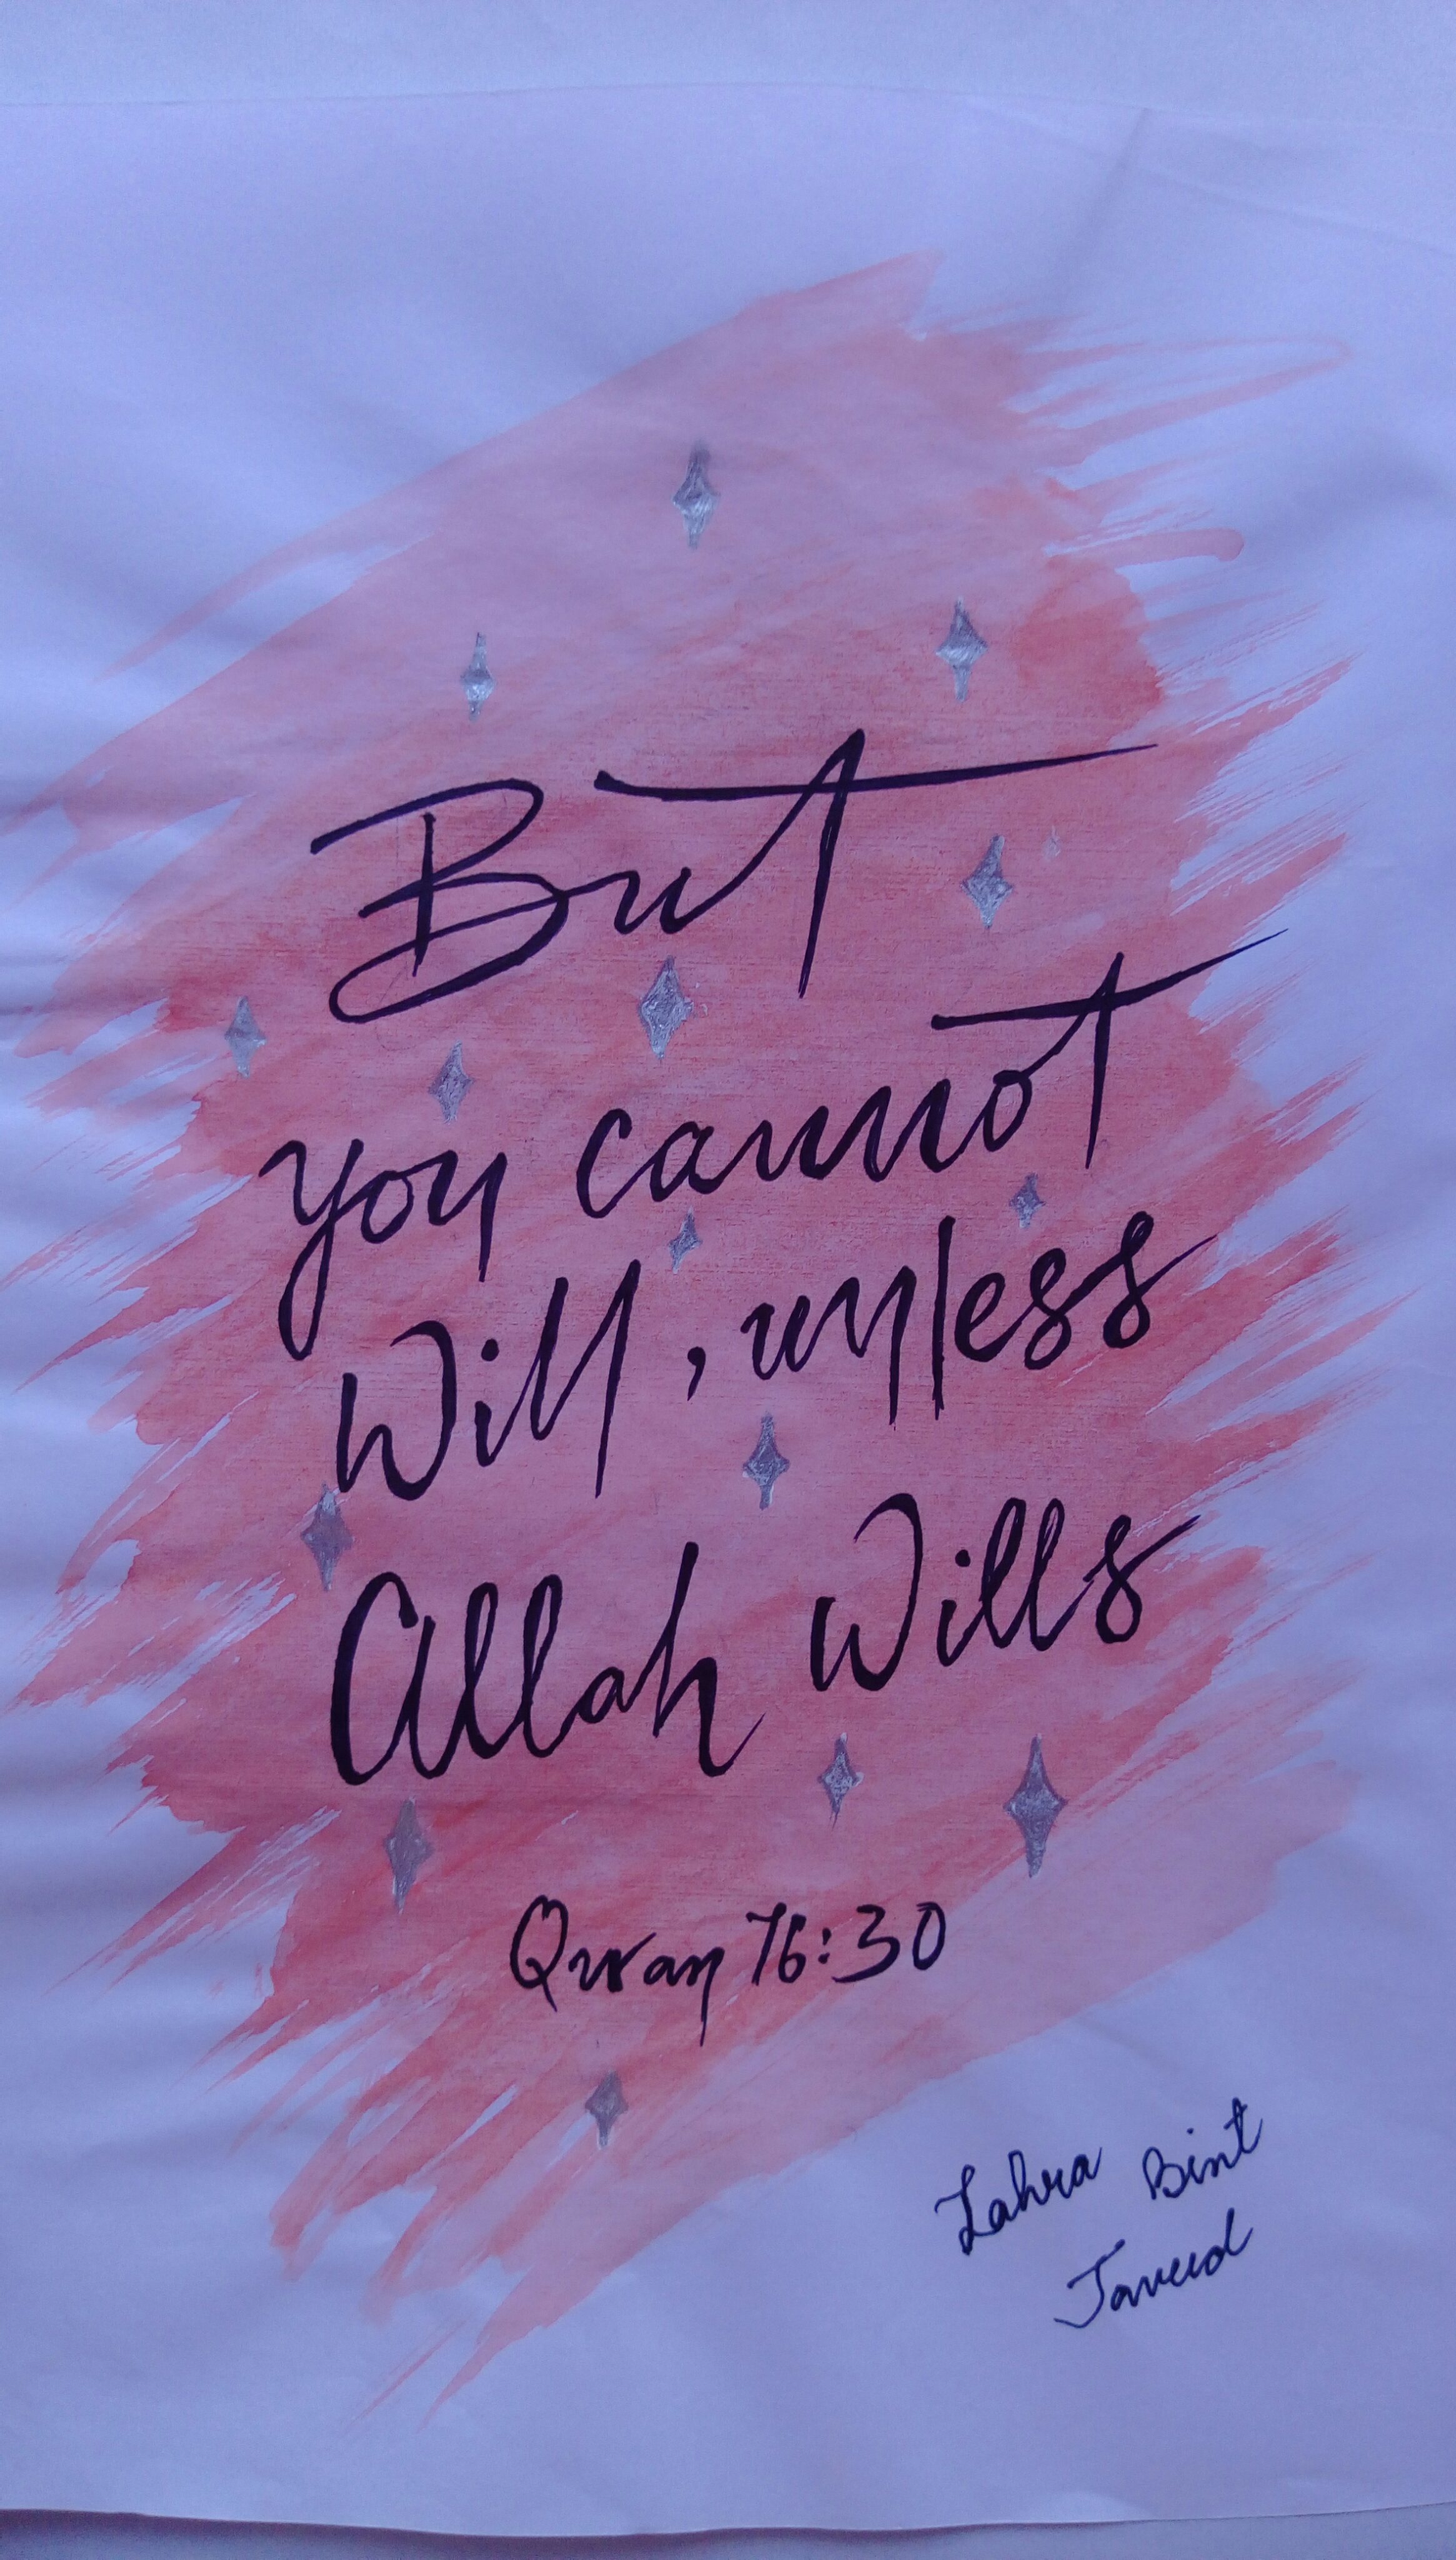 But
you cannot
Will, unless
Allah Wills
Quran 76:30
Zahra Bint
Javeed